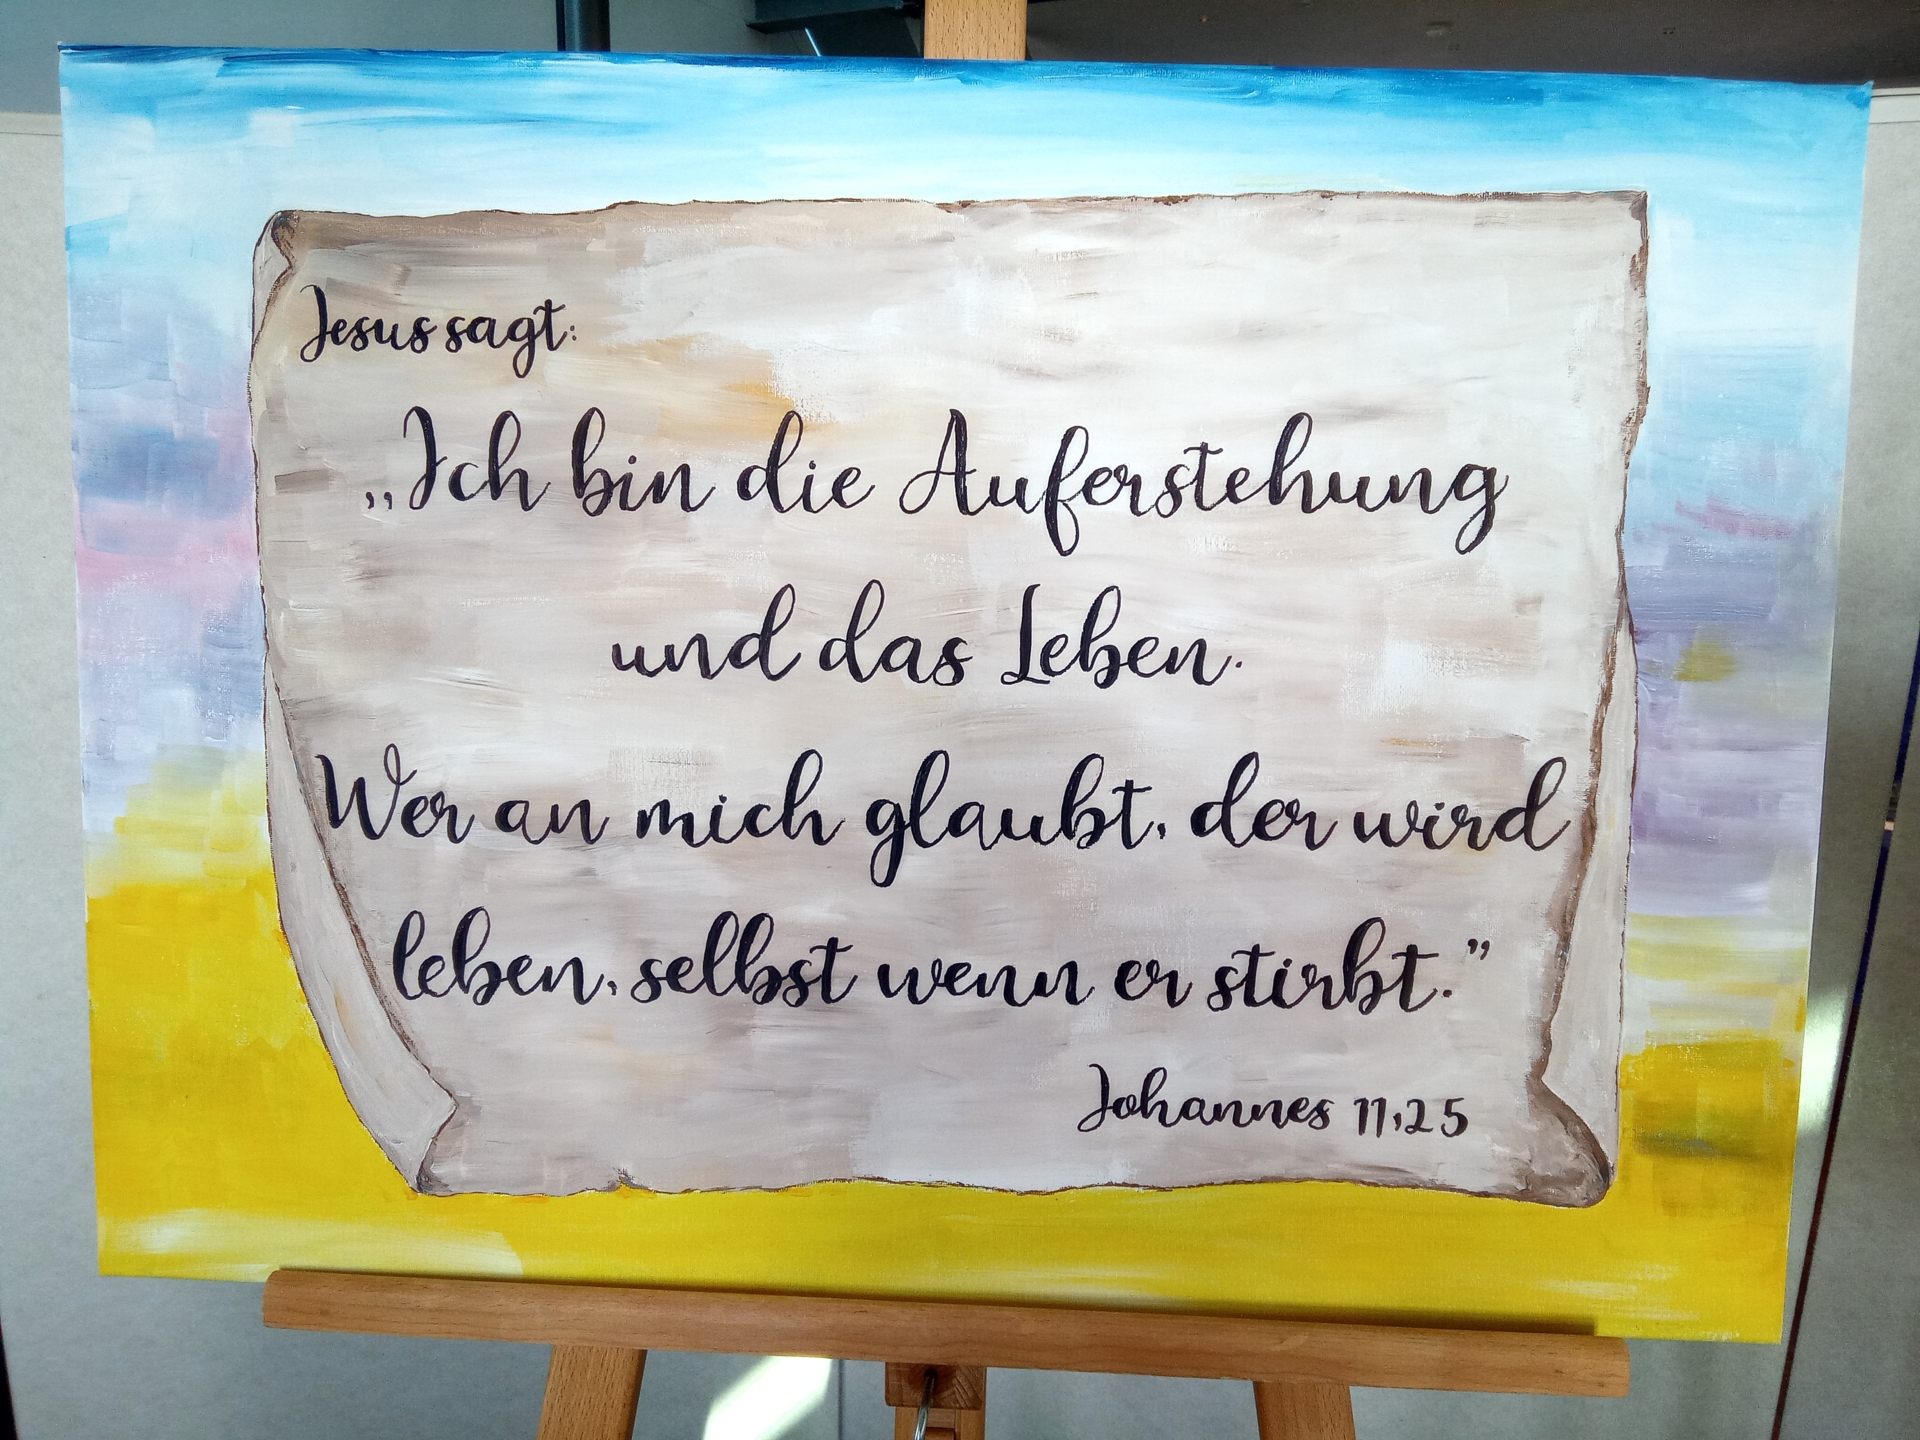 Jesus sagt:
„Ich bin die Auferstehung
und das Leben.
Wer an mich glaubt, der wird
leben, selbst wenn er stirbt.”
Johannes 11,25